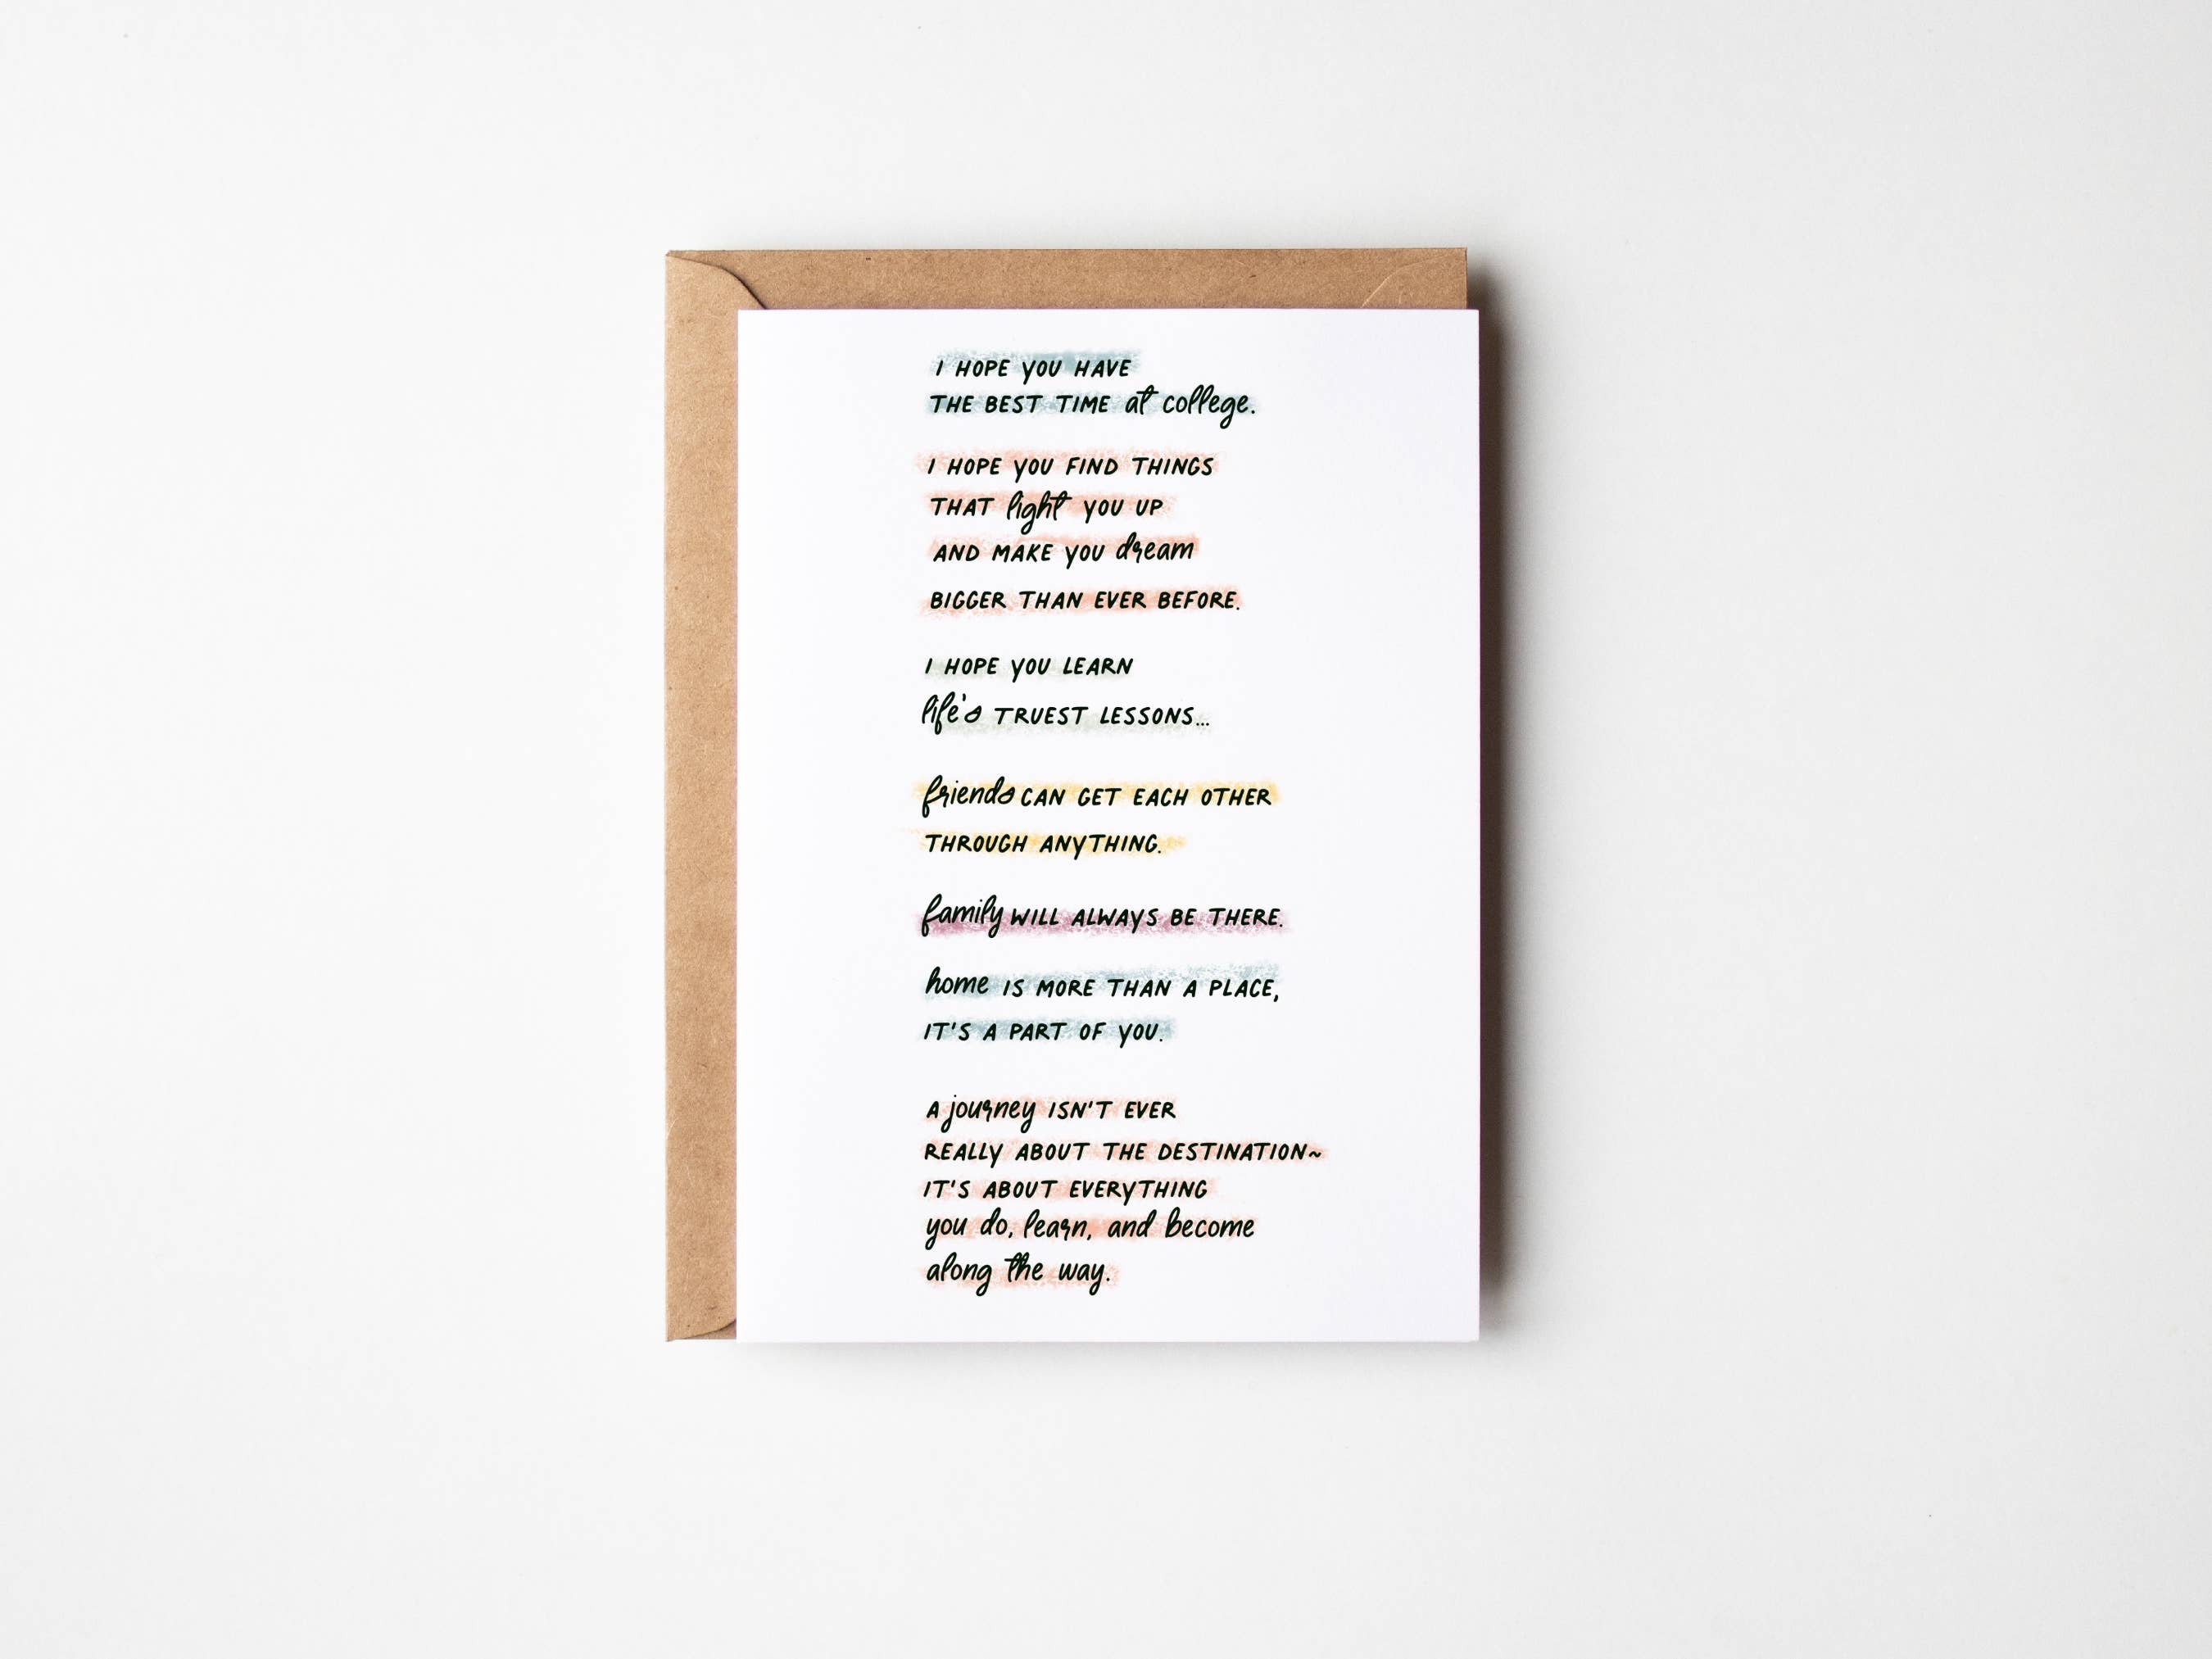 I HOPE YOU HAVE
THE BEST TIME at college.
I HOPE YOU FIND THINGS
THAT light YOU UP
AND MAKE YOU dream
BIGGER THAN EVER BEFORE.
I HOPE YOU LEARN
life's TRUEST LESSONS...
friends CAN GET EACH OTHER
THROUGH ANYTHING.
family WILL ALWAYS BE THERE.
home IS MORE THAN A PLACE,
IT'S A PART OF YOU.
A journey ISN'T EVER
REALLY ABOUT THE DESTINATION~
IT'S ABOUT EVERYTHING
you do, learn, and become
along the way.